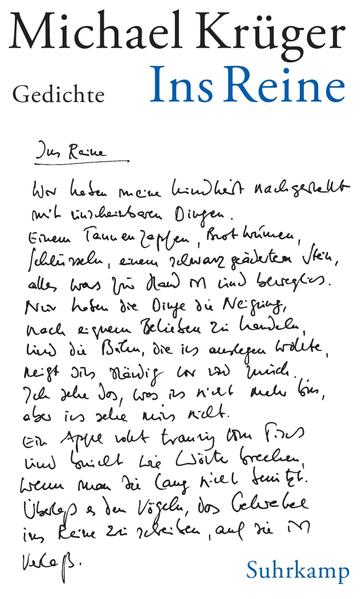 Michael Krüger
Gedichte Ins Reine
Ins Reine
Wir haben meine Kindheit nachgestellt
mit unscheinbaren Dingen.
Einem Tannenzapfen, Brotkrümen,
Schlüsseln, einem schwarz geäderten Stein,
alles was zur Hand ist und beweglich.
Nur haben die Dinge die Neigung,
nach eignem Belieben zu handeln,
und die Bühne, die ich auslegen wollte,
neigt sich ständig vor und zurück.
Ich sehe das, was ich nicht mehr bin,
aber ich sehe mich nicht.
Ein Apfel rollt traurig vom Tisch
und bricht wie Wörter brechen,
wenn man sie lang nicht benützt.
Überlaß es den Vögeln, das
ins Reine zu schreiben, auf die ist
Verlaß.
Suhrkamp